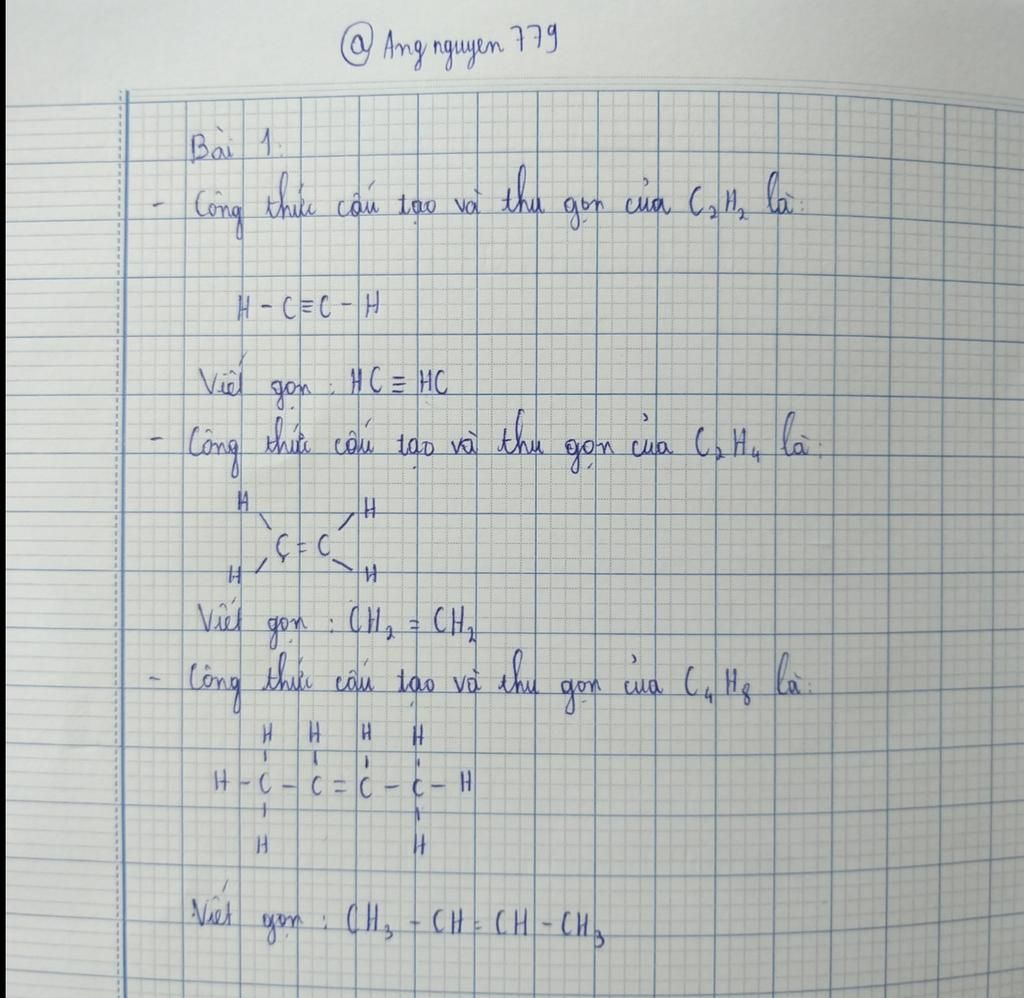 @Angnguyen779
Bài 1:
- Công thức cấu tạo và thu gọn của C₂H₂ là:
H - C ≡ C - H
Viết gọn : HC ≡ HC
- Công thức cấu tạo và thu gọn của C₂H₄ là:
H H
C = C
H H
Viết gọn : CH₂ = CH₂
- Công thức cấu tạo và thu gọn của C₄H₈ là:
H H H H
H - C - C = C - C - H
H H
Viết gọn : CH₃ - CH = CH - CH₃